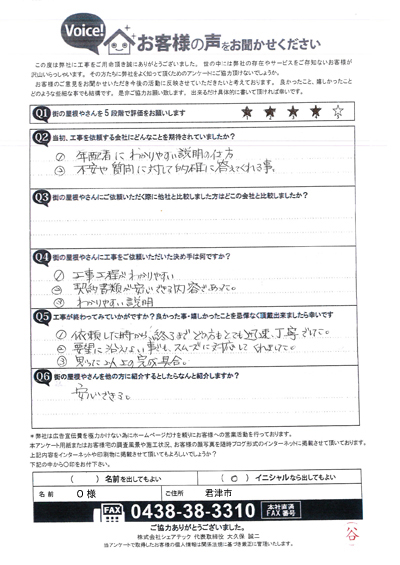 Voice!
お客様の声をお聞かせください
この度は弊社に工事をご用命頂き誠にありがとうございました。世の中には弊社の存在やサービスをご存知ないお客様が
沢山いらっしゃいます。その方たちに弊社をよく知って頂くためのアンケートにご協力頂けないでしょうか。
お客様のご意見をお聞かせいただき今後の活動に反映させていただきたいと考えております。良かったこと、嬉しかったこと
どのような些細な事でも結構です。是非ご協力お願い致します。出来るだけ具体的に書いて頂ければ幸いです。
Q1 街の屋根やさんを5段階で評価をお願いします ★ ★ ★ ★ ☆
Q2 当初、工事を依頼する会社にどんなことを期待されていましたか?
① 年配者にわかりやすい説明の仕方
② 不安や質問に対して的確に答えてくれる事。
Q3 街の屋根やさんにご依頼いただく際に他社と比較しました方はどこの会社と比較しましたか?
Q4 街の屋根やさんに工事をご依頼いただいた決め手は何ですか?
① 工事工程がわかりやすい
② 契約書類が安心できる内容であった。
③ わかりやすい説明
Q5 工事が終わってみていかがですか?良かった事・嬉しかったことを忌憚なく頂戴出来ましたら幸いです
① 依頼した時から、終るまでどの方もとても迅速、丁寧でした。
② 要望に沿えない事でも、スムーズに対応してくれました。
③ 思った以上の完成具合。
Q6 街の屋根やさんを他の方に紹介するとしたらなんと紹介しますか?
安心できる。
*弊社は広告宣伝費を極力かけない為にホームページだけを頼りにお客様への営業活動を行っております。
本アンケート用紙またはお客様宅の調査風景や施工状況、お客様の顔写真を随時ブログ形式のインターネットに掲載させて頂いております。
上記内容をインターネットや印刷物に掲載させて頂いてもよろしいでしょうか?
下記の中から〇印をお付け下さい。
( ) 名前を出してもよい ( ○ ) イニシャルなら出してもよい
名 前 O 様 ご住所 君津市
FAX 0438-38-3310 本社直通 FAX番号
ご協力ありがとうございました。
株式会社シェアテック 代表取締役 大久保 誠二
当アンケートで取得したお客様の個人情報は関係法規に基づき厳正に管理いたします。
谷